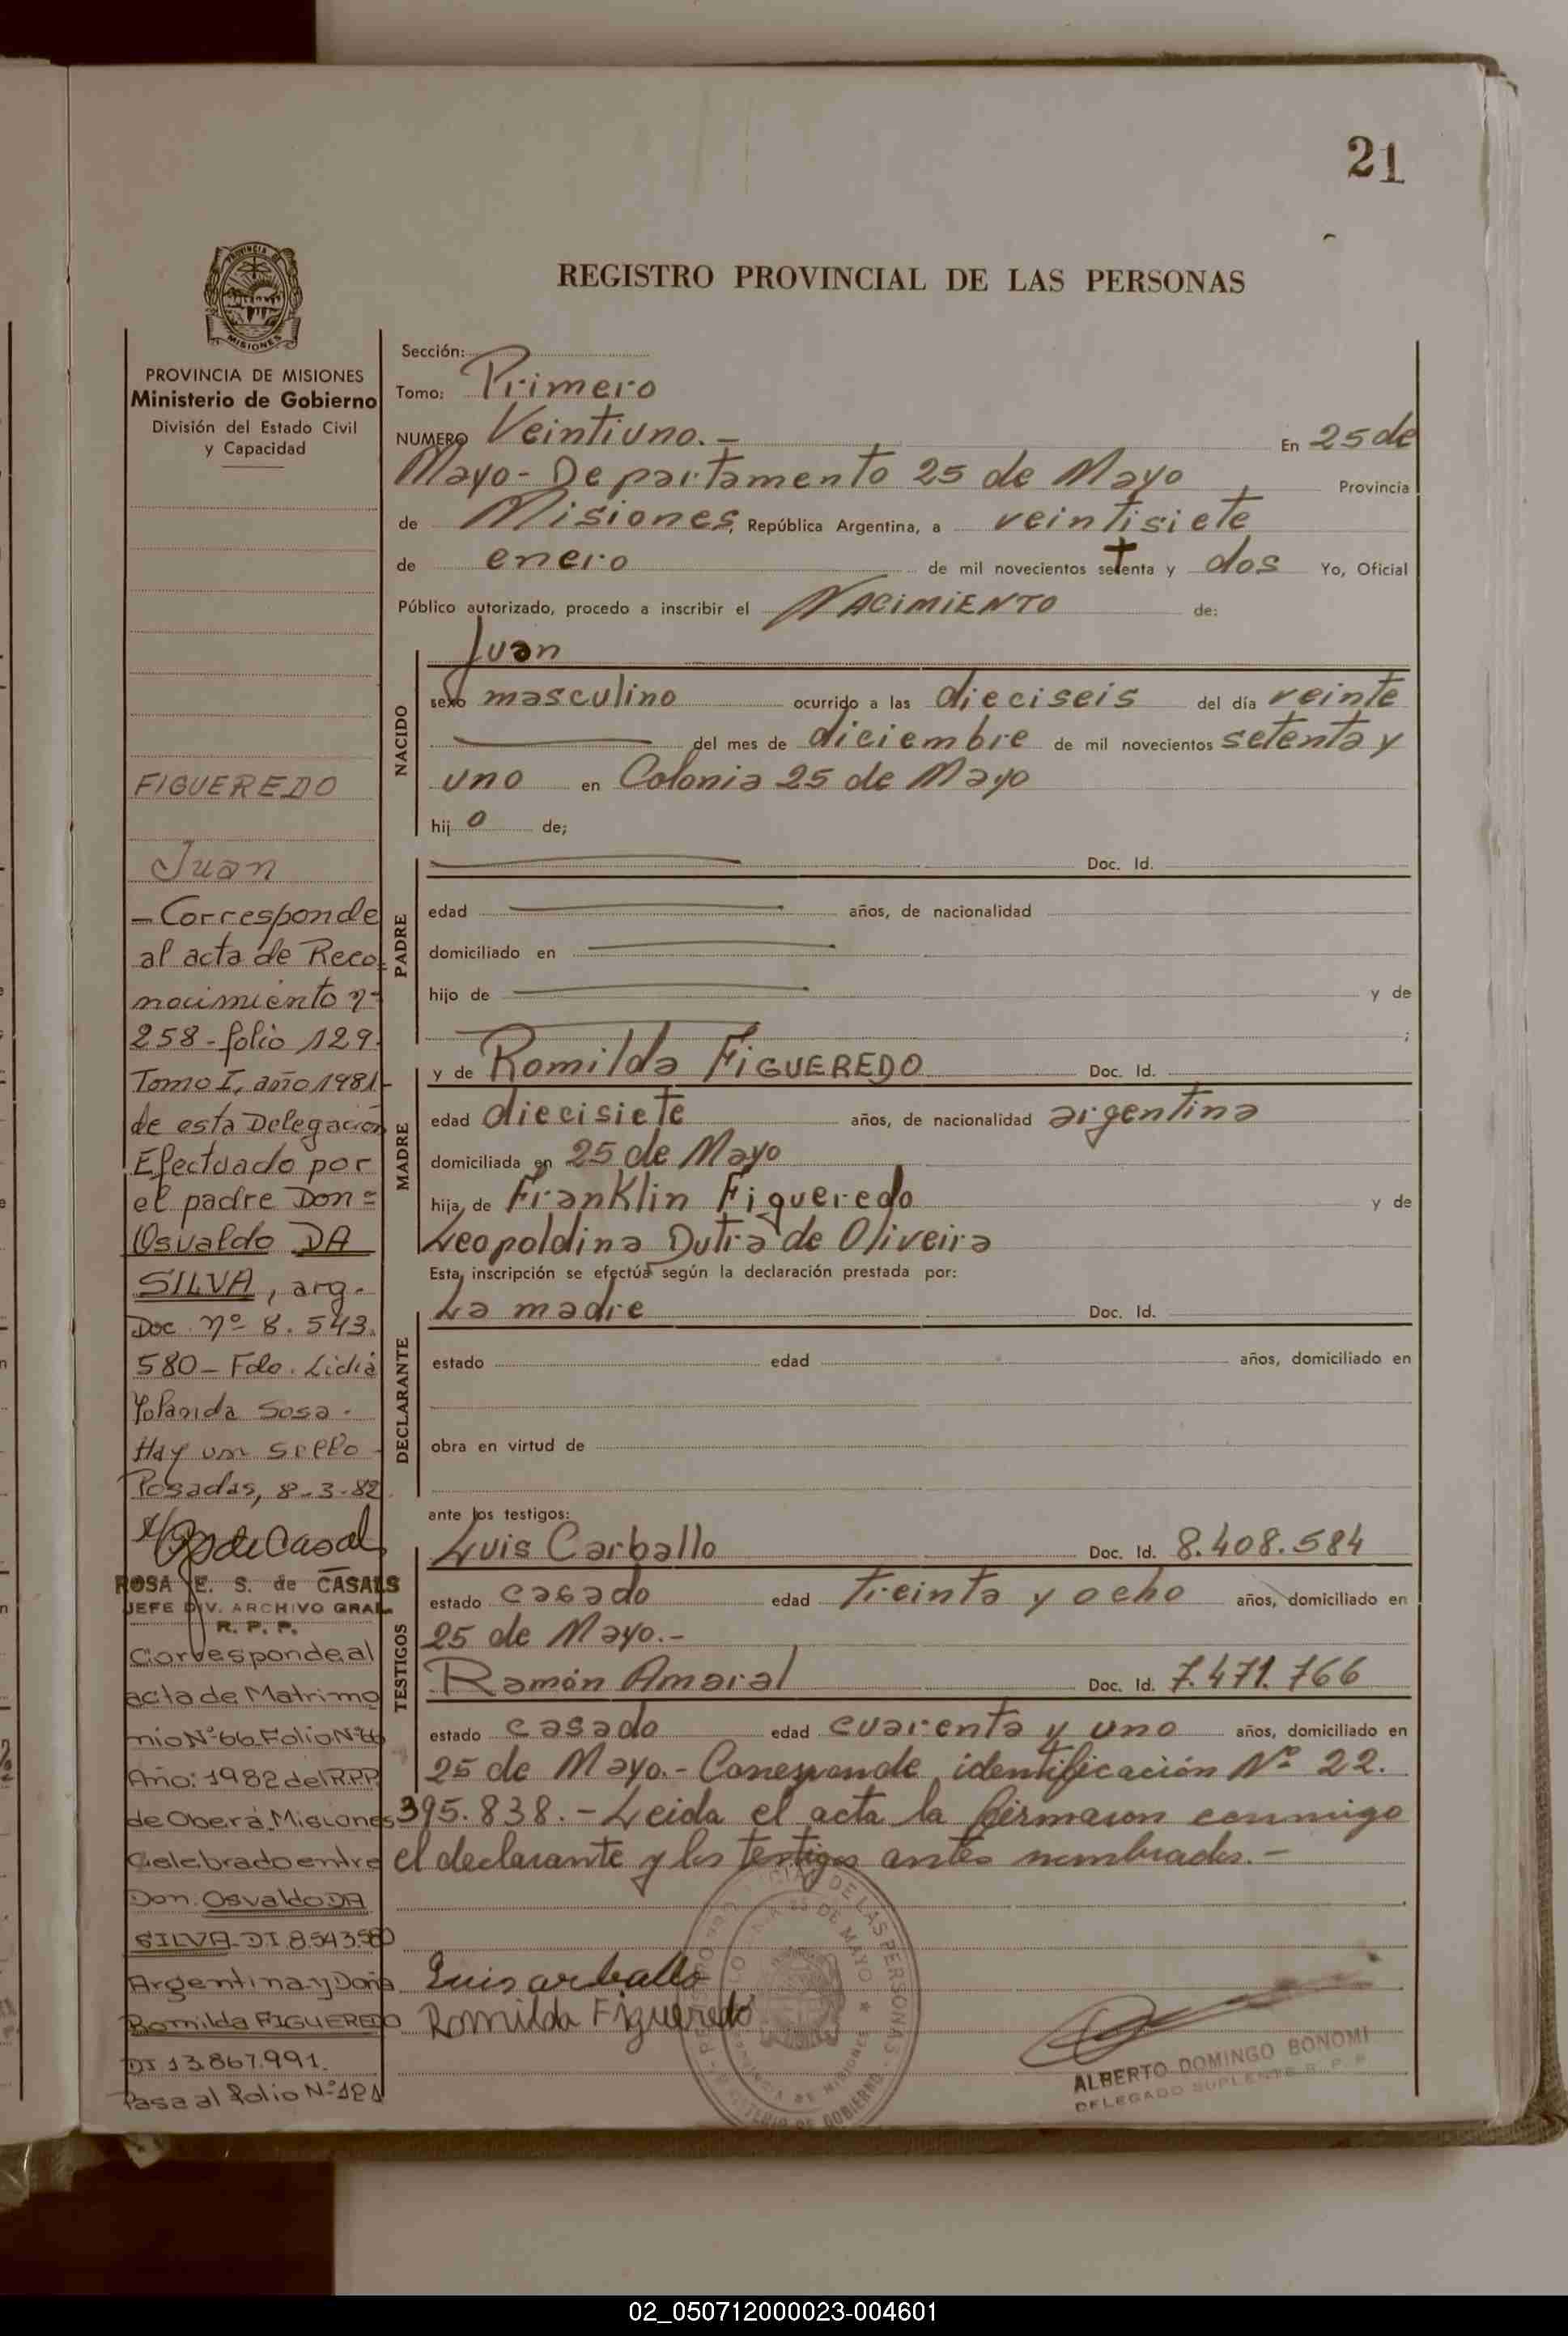 21
REGISTRO PROVINCIAL DE LAS PERSONAS
PROVINCIA DE
MISIONES
PROVINCIA DE MISIONES
Ministerio de Gobierno
División del Estado Civil
y Capacidad
FIGUEREDO
Juan
- Corresponde
al acta de Reco-
nocimiento nº
258 - folio 129-
Tomo I, año 1981-
de esta Delegación
Efectuado por
el padre Don=
Osvaldo DA
SILVA, arg.
Doc. nº 8.543.
580 - Fdo. Lidia
Yolanda Sosa -
Hay un sello -
Posadas, 8-3-82.
ROSA E. S. de CASALS
JEFE DIV. ARCHIVO GRAL.
R. P. P.
Corresponde al
acta de Matrimo
nio Nº 66 Folio Nº 66
Año: 1982 del R.P.P.
de Oberá Misiones
Celebrado entre
Don. Osvaldo DA
SILVA - DI 8.543.580
Argentina y Doña
Romilda FIGUEREDO
DI 13.867.991.
Pasa al folio Nº 121
Sección:
Tomo: Primero
NUMERO Veintiuno.- En 25 de
Mayo - Departamento 25 de Mayo Provincia
de Misiones, República Argentina, a veintisiete
de enero de mil novecientos setenta y dos Yo, Oficial
Público autorizado, procedo a inscribir el NACIMIENTO de:
NACIDO
Juan
sexo masculino ocurrido a las dieciseis del día veinte
del mes de diciembre de mil novecientos setenta y
uno en Colonia 25 de Mayo
hij o de;
PADRE
Doc. Id.
edad años, de nacionalidad
domiciliado en
hijo de y de
;
MADRE
y de Romilda FIGUEREDO Doc. Id.
edad diecisiete años, de nacionalidad argentina
domiciliada en 25 de Mayo
hija de Franklin Figueredo y de
Leopoldina Dutra de Oliveira
Esta inscripción se efectúa según la declaración prestada por:
DECLARANTE
La madre Doc. Id.
estado edad años, domiciliado en
obra en virtud de
ante los testigos:
TESTIGOS
Luis Carballo Doc. Id. 8.408.584
estado casado edad treinta y ocho años, domiciliado en
25 de Mayo.-
Ramón Amaral Doc. Id. 7.471.766
estado casado edad cuarenta y uno años, domiciliado en
25 de Mayo.- Corresponde identificación Nº 22.
395.838.- Leida el acta la firmaron conmigo
el declarante y los testigos antes nombrados.-
Luis arballo
Romilda Figueredo
ALBERTO DOMINGO BONOMI
DELEGADO SUPLENTE R. P. P.
02_050712000023-004601